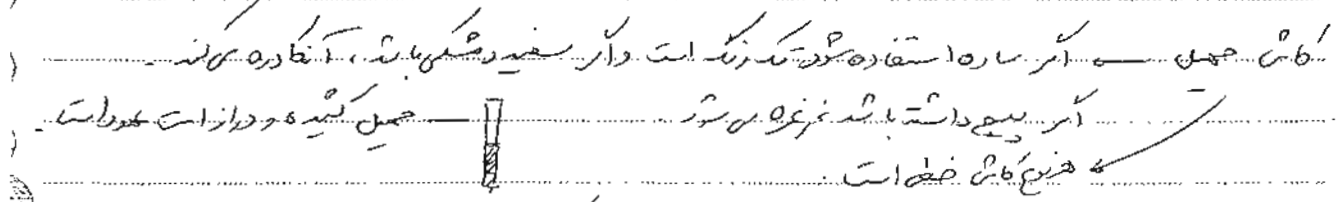 کاشی حمیل ← اگر ساده استفاده شود تک رنگ است و اگر سفید و مشکی باشد، آنگاه دره می کند.
اگر پیچ داشته باشد غرغره می شود. — حمیل کشیده و دراز است عمود است.
هر نوع کاشی خطی است.